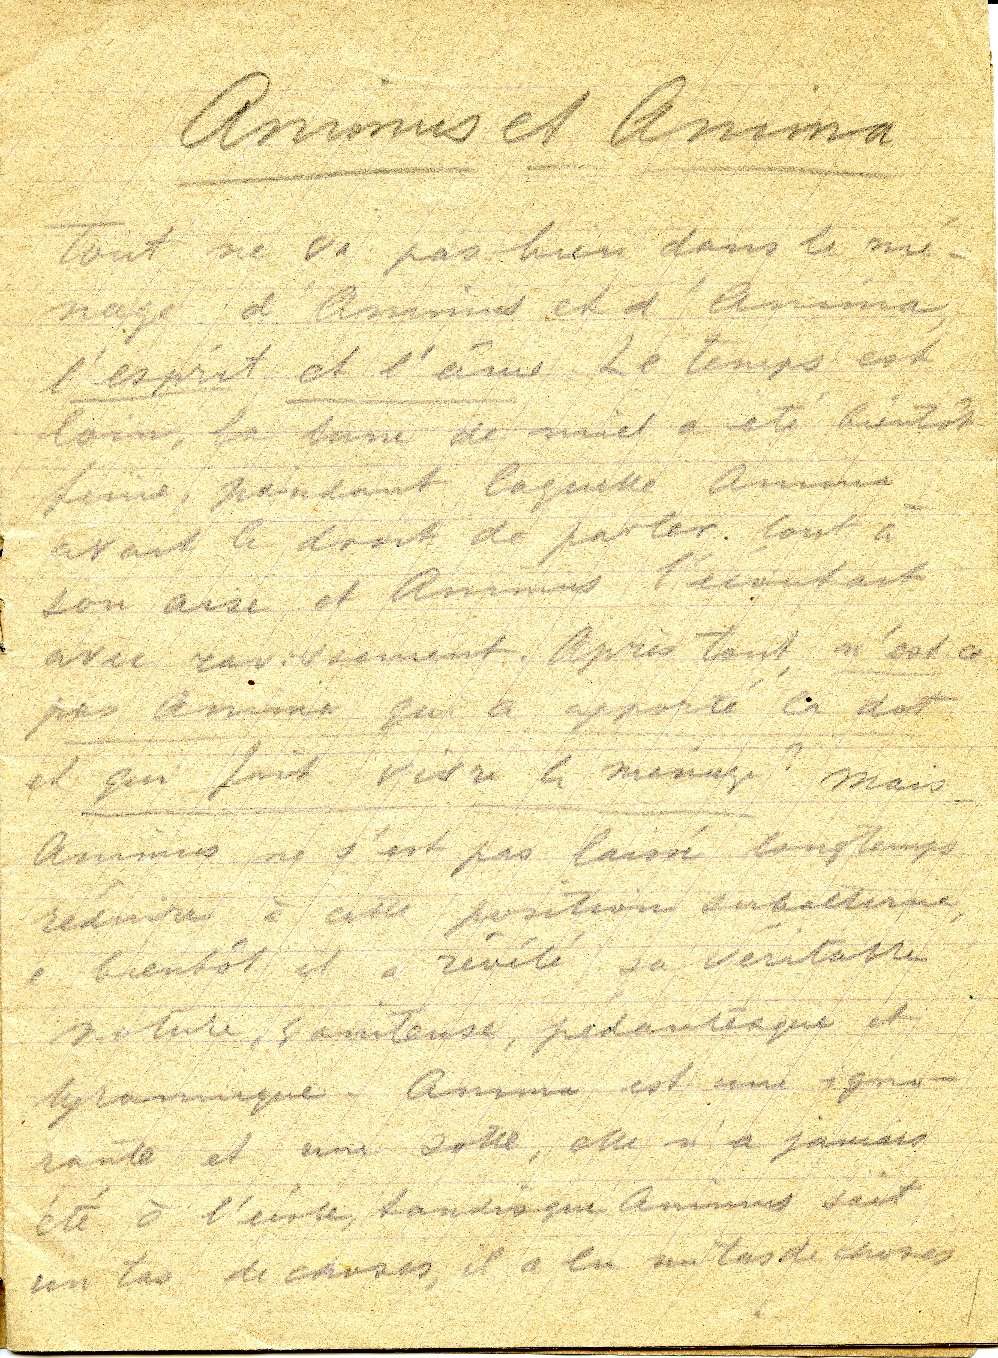 Animus et Anima
Tout ne va pas bien dans le mé-
nage d'Animus et d'Anima,
l'esprit et l'âme Le temps est
loin, la lune de miel a été bientôt
finie, pendant laquelle Anima
avait le droit de parler tout à
son aise et Animus l'écoutait
avec ravissement. Après tout, n'est ce
pas Anima qui a apporté la dot
et qui fait vivre le ménage? Mais
Animus ne s'est pas laissé longtemps
réduire à cette position subalterne,
e bientôt il a révélé sa véritable
nature, vaniteuse, pédantesque et
tyrannique - Anima est une igno-
rante et une sotte, elle n'a jamais
été à l'école, tandisque Animus sait
un tas de choses, il a lu un tas de choses